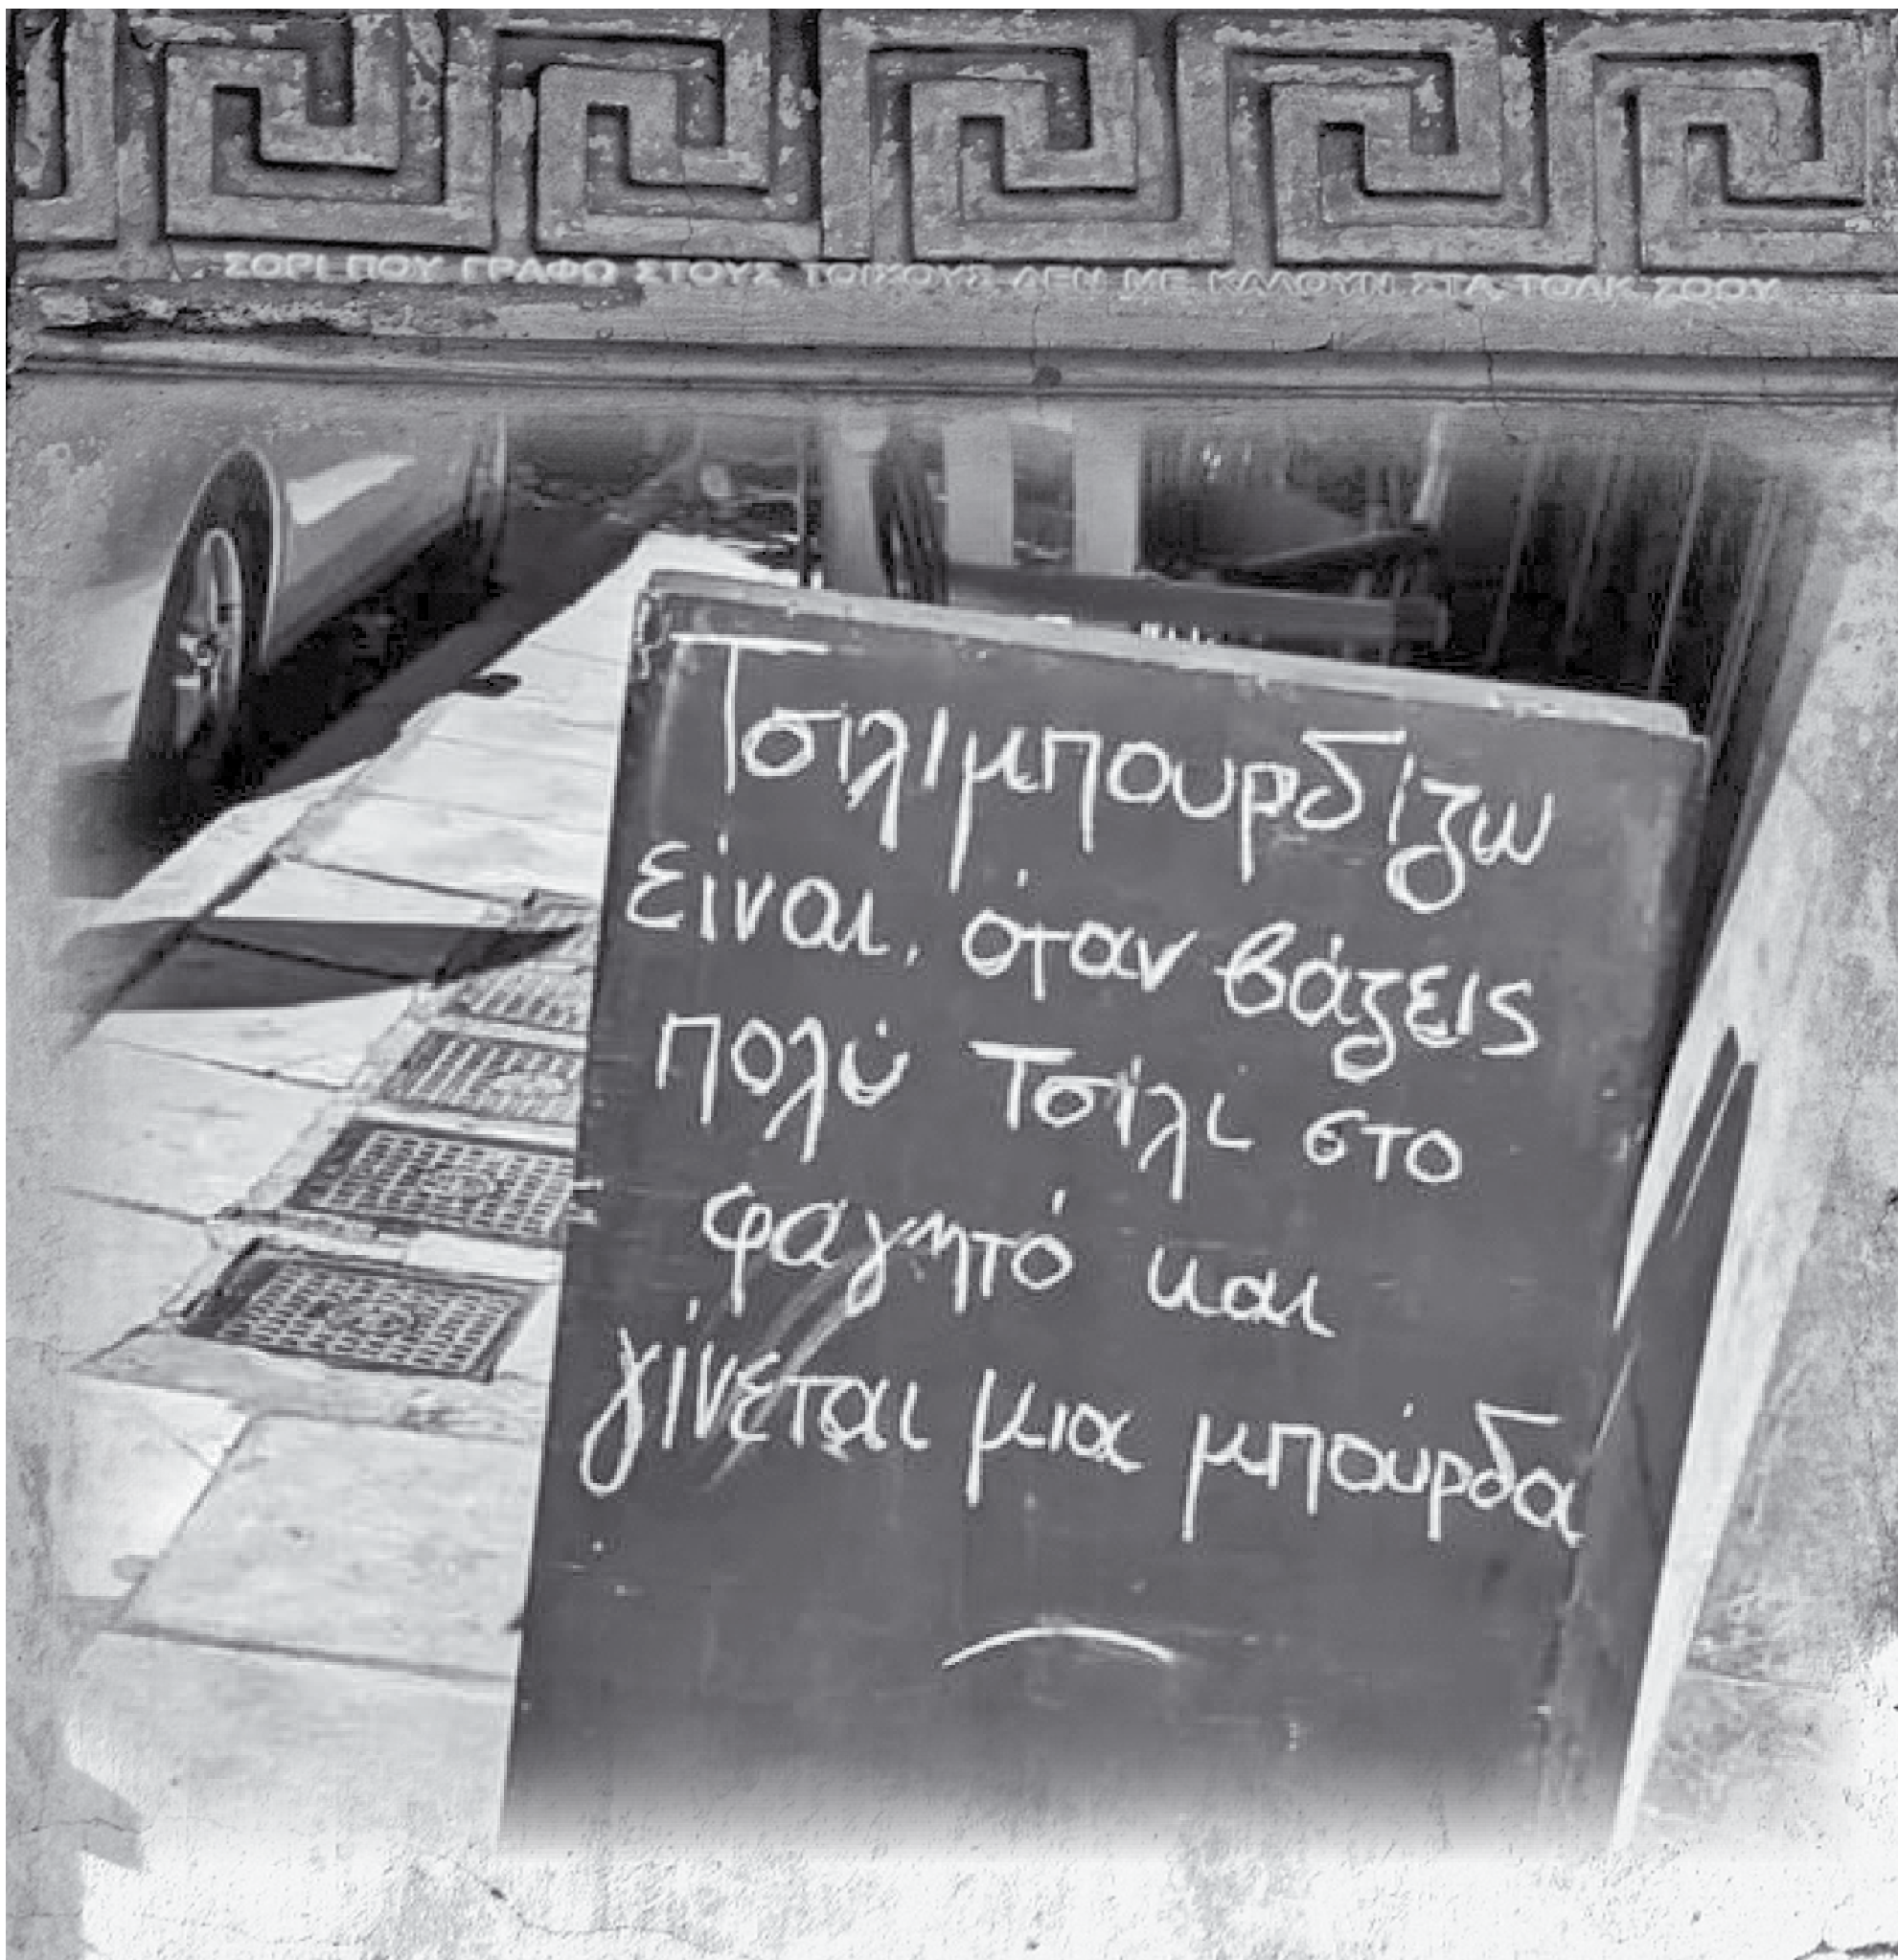 ΣΟΡΙ ΠΟΥ ΓΡΑΦΩ ΣΤΟΥΣ ΤΟΙΧΟΥΣ ΔΕΝ ΜΕ ΚΑΛΟΥΝ ΣΤΑ ΤΟΛΚ ΣΟΟΥ
Τσιλιμπουρδίζω
είναι, όταν βάζεις
πολύ Τσίλι στο
φαγητό και
γίνεται μια μπούρδα